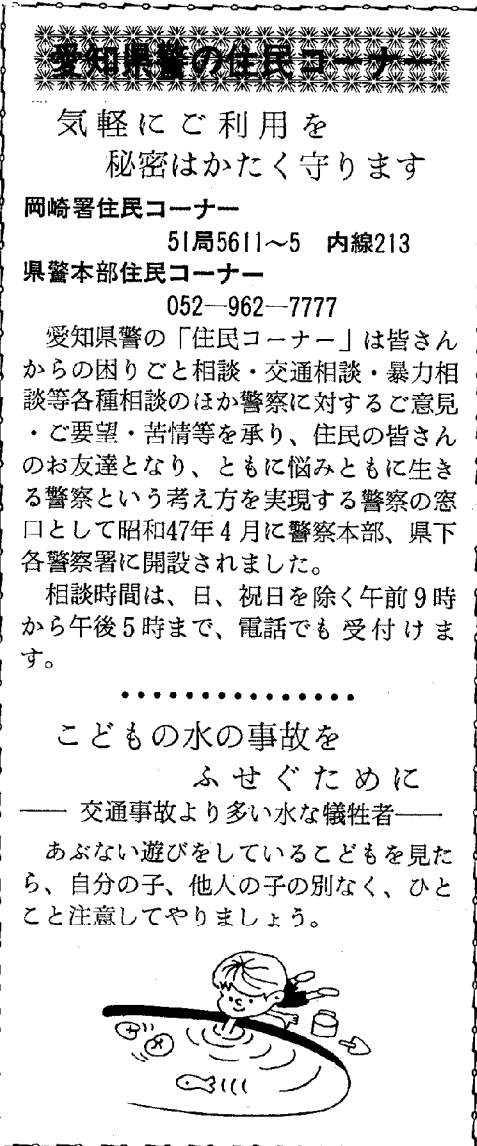 愛知県警の住民コーナー
気軽にご利用を
秘密はかたく守ります
岡崎署住民コーナー
51局5611〜5　内線213
県警本部住民コーナー
052―962―7777
　愛知県警の「住民コーナー」は皆さん
からの困りごと相談・交通相談・暴力相
談等各種相談のほか警察に対するご意見
・ご要望・苦情等を承り、住民の皆さん
のお友達となり、ともに悩みともに生き
る警察という考え方を実現する警察の窓
口として昭和47年4月に警察本部、県下
各警察署に開設されました。
　相談時間は、日、祝日を除く午前9時
から午後5時まで、電話でも受付けま
す。
こどもの水の事故を
ふせぐために
――交通事故より多い水な犠牲者――
　あぶない遊びをしているこどもを見た
ら、自分の子、他人の子の別なく、ひと
こと注意してやりましょう。